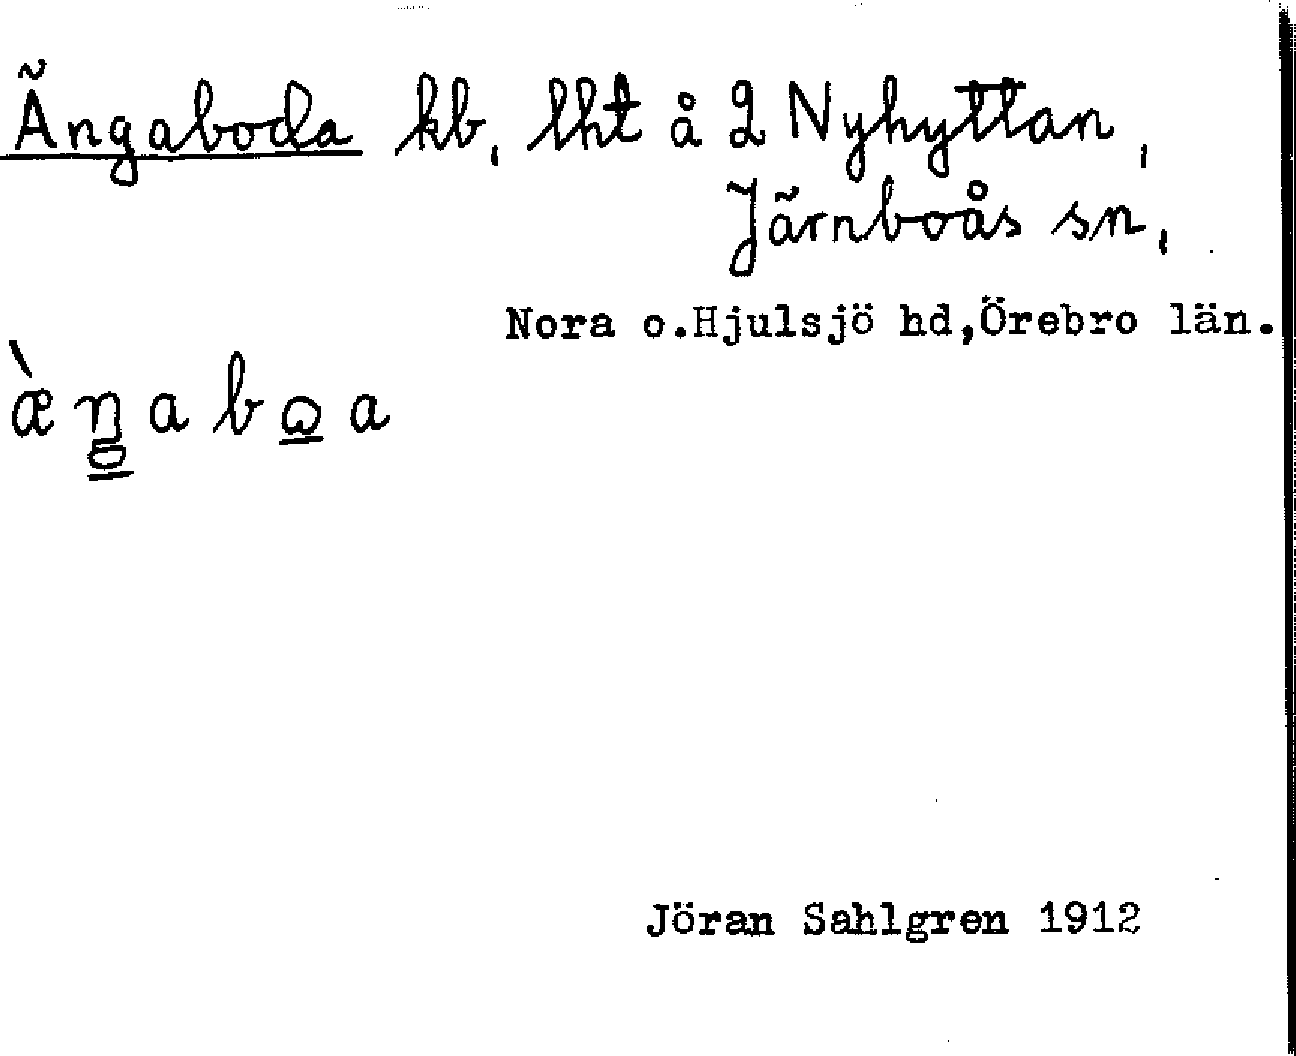 Ängaboda kb, lht å 2 Nyhyttan,
Järnboås sn,
Nora o.Hjulsjö hd,Örebro län.
æ̀ŋabωa
Jöran Sahlgren 1912